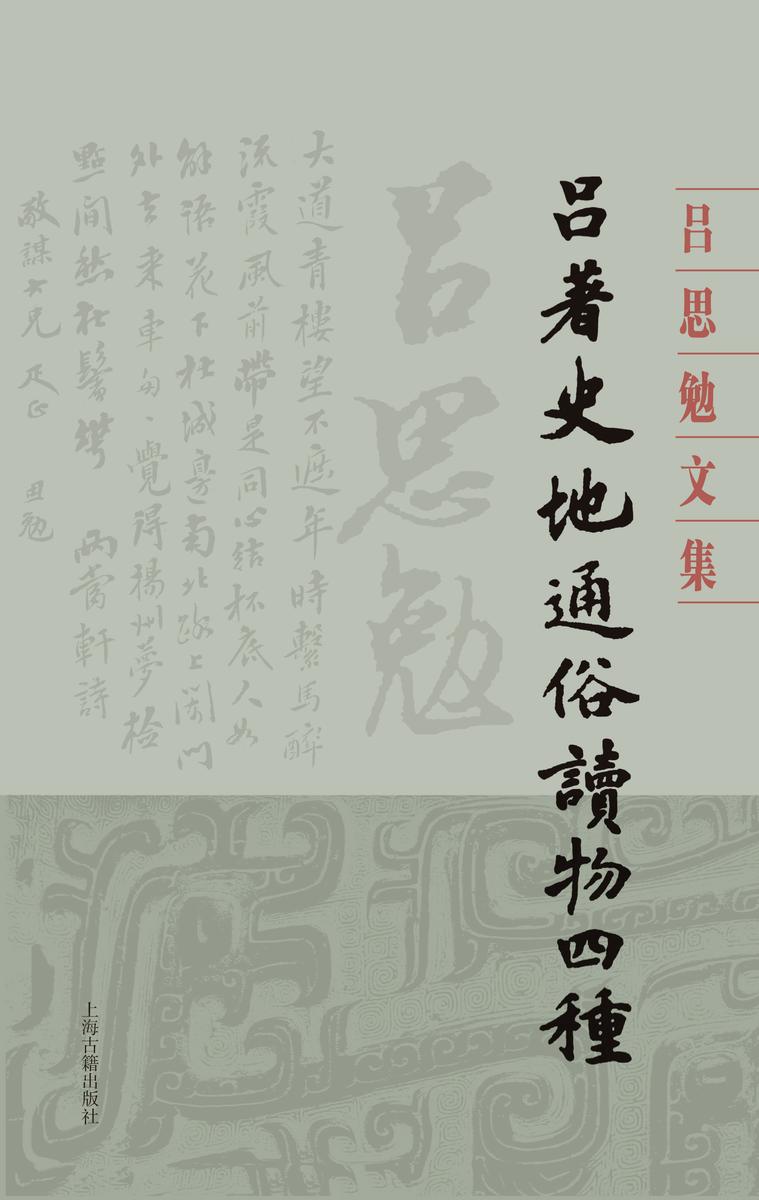 吕思勉文集
吕著史地通俗讀物四種
吕思勉
大道青樓望不遮年時繫馬醉
流霞風前帶是同心結杯底人如
解語花下杜城邊南北路上闌門
外去來車匆〻覺得揚州夢檢
點閒愁在鬢華 兩當軒詩
敬謀大兄 正 思勉
上海古籍出版社